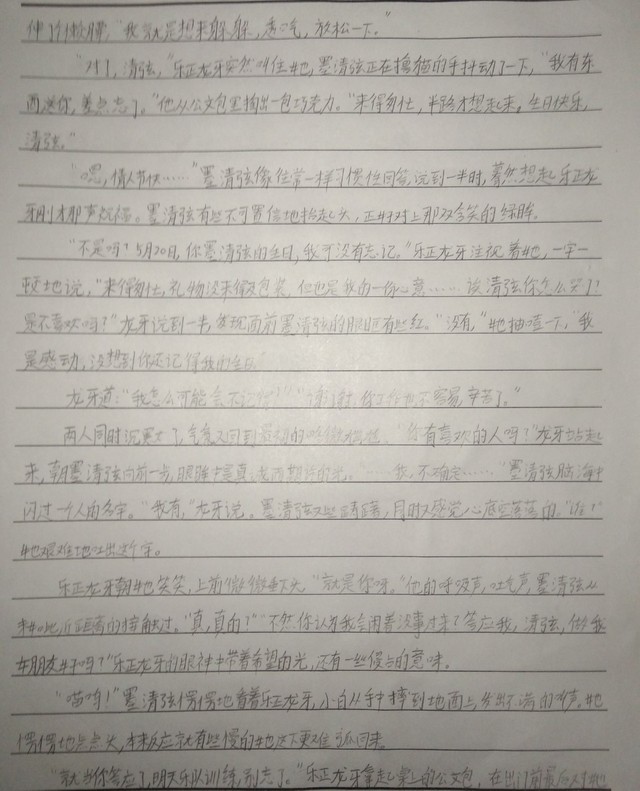 伸了个懒腰，“我就是想来躲躲，透透气，放松一下。”
“对了，清弦，”乐正龙牙突然叫住她，墨清弦正在撸猫的手抖动了一下，“我有东
西送你，差点忘了。”他从公文包里掏出一包巧克力。“来得匆忙，半路才想起来。生日快乐，
清弦。”
“嗯，情人节快……”墨清弦像往常一样习惯性回答，说到一半时，蓦然想起乐正龙
牙刚才那声祝福。墨清弦有些不可置信地抬起头，正好对上那双含笑的绿眸。
“不是吗？5月20日，你墨清弦的生日，我可没有忘记。”乐正龙牙注视着她，一字一
顿地说，“来得匆忙，礼物没来得及包装，但也是我的一份心意……诶清弦你怎么哭了？
是不喜欢吗？”龙牙说到一半，发现面前墨清弦的眼眶有些红。“没有，”她抽噎一下，“我
是感动，没想到你还记得我的生日”
龙牙道：“我怎么可能会不记得？” 你 也不容易，辛苦了。”
两人同时沉默了，气氛又回到最初的 “你有喜欢的人吗？”龙牙站起
来，朝墨清弦向前一步，眼睛中是真诚而期待的光。“……我，不确定……”墨清弦脑海中
闪过一个人的名字。“我有，”龙牙说。墨清弦有些 ，同时又感觉心底空落落的，“谁？”
她艰难地吐出这个字。
乐正龙牙朝她笑笑，上前微微垂下头，“就是你呀。”他的呼吸声，吐气声，墨清弦从
未如此近距离的接触过。“真，真的？”“不然你认为我会闲着没事过来？答应我，清弦，做我
女朋友好吗？”乐正龙牙的眼神中带着希望的光，还有一丝 的意味。
“喵呜！”墨清弦愣愣地看着乐正龙牙，小白从手中摔到地面上，发出不满的叫声。她
愣愣地点点头，本来反应就有些慢的她这下更难 回来。
“就当你答应了，明天乐队训练，别忘了。”乐正龙牙拿起桌上的公文包，在出门前最后对她